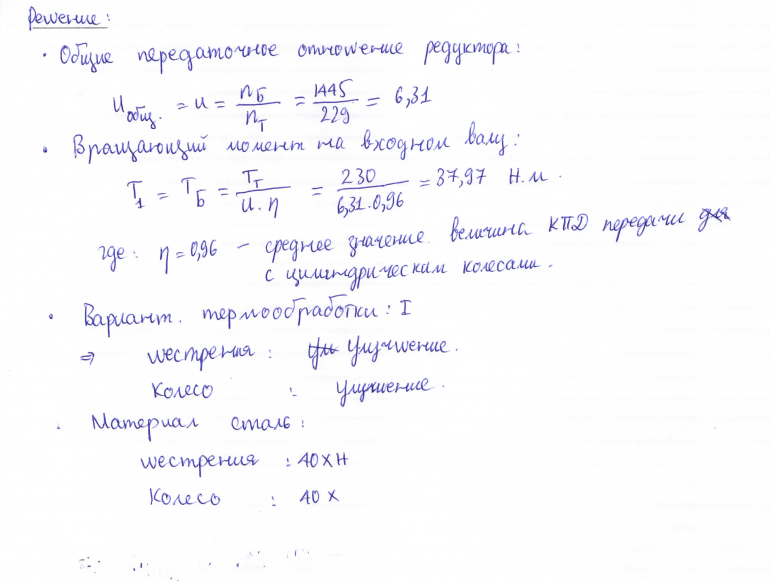 Решение:
· Общие передаточное отношение редуктора:
u общ. = u = nБ / nТ = 1445 / 229 = 6,31
· Вращающий момент на входном валу:
T1 = TБ = TТ / u·η = 230 / 6,31·0,96 = 37,97 Н.м.
где: η = 0,96 – среднее значение. величина КПД передачи
с цилиндрическим колесами.
· Вариант. термообработки: I
⇒ шестрения: улучшение.
Колесо : улучшение.
· Материал сталь:
шестрения : 40ХН
Колесо : 40Х